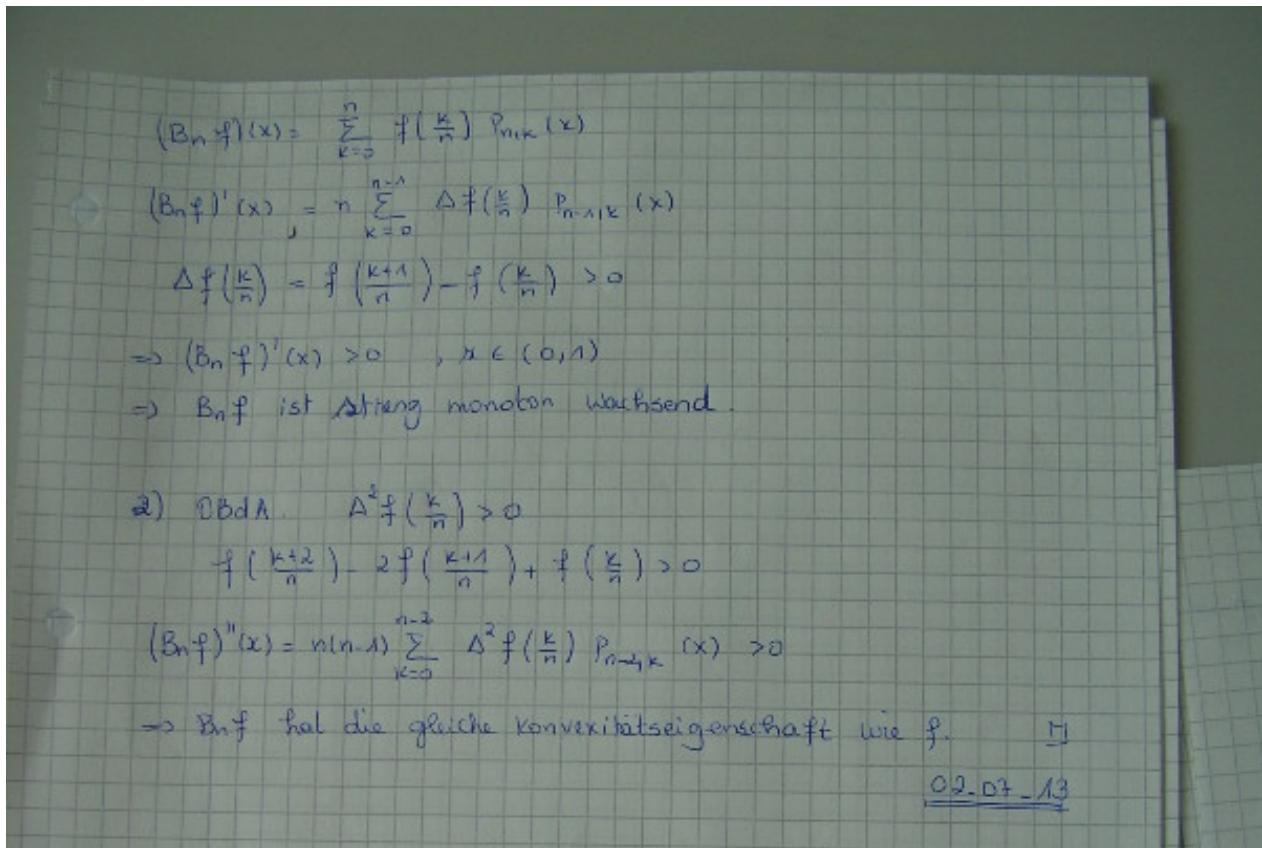 (Bₙf)(x) = Σ_{k=0}^{n} f(k/n) Pₙ,ₖ(x)
(Bₙf)'(x) = n Σ_{k=0}^{n-1} Δf(k/n) Pₙ₋₁,ₖ(x)
Δf(k/n) = f((k+1)/n) - f(k/n) > 0
=> (Bₙf)'(x) > 0 , x ∈ (0,1)
=> Bₙf ist streng monoton wachsend.
2) OBdA. Δ²f(k/n) > 0
f((k+2)/n) - 2f((k+1)/n) + f(k/n) > 0
(Bₙf)''(x) = n(n-1) Σ_{k=0}^{n-2} Δ²f(k/n) Pₙ₋₂,ₖ(x) > 0
=> Bₙf hat die gleiche Konvexitätseigenschaft wie f.
02-07-13